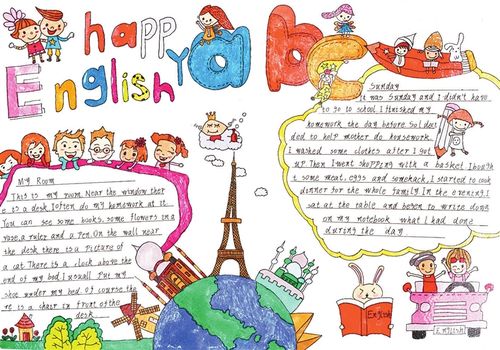 happy
English
abc
My Room
This is my room. Near the window ther
e is a desk. I often do my homework at it.
You can see some books, some flowers in a
vase, a ruler and a pen. On the wall near
the desk there is a picture of
a cat. There is a clock above the
end of my bed. I usuall put my
shoe under my bed. Of course, the
re is a chair in front of the
desk
Sunday
It was Sunday and I didn't have
to go to school I finished my
homework the day before So I deci
ded to help mother do housework.
I washed some clothes after I got
up Then I went shopping with a basket I bough
t some meat, eggs and I started to cook
dinner for the whole family In the evening I
sat at the table and began to write down
on my notebook what I had done
during the day
English
English